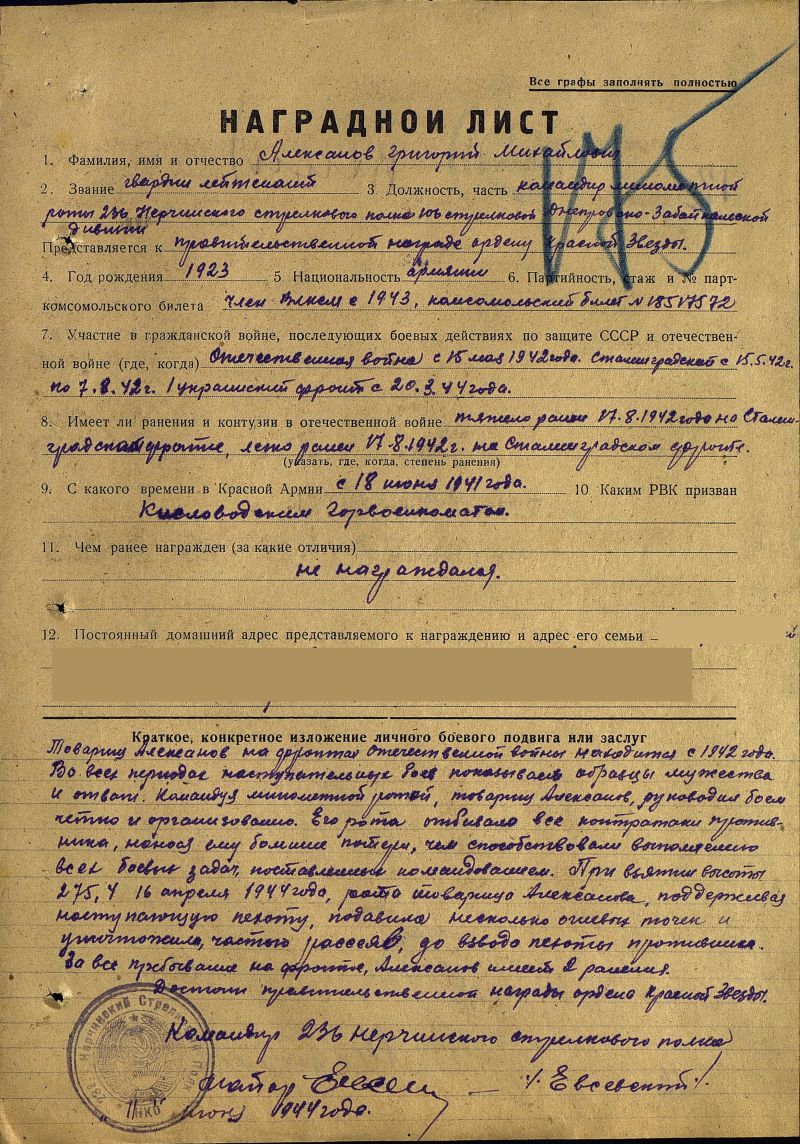 Все графы заполнять полностью
НАГРАДНОЙ ЛИСТ
175
1. Фамилия, имя и отчество Алексанов Григорий Михайлович
2. Звание гвардии лейтенант 3 Должность, часть командир минометной
роты 236 Нерчинского стрелкового полка 106 стрелковой Днепровско-Забайкальской
дивизии
Представляется к правительственной награде ордену Красной Звезды.
4. Год рождения 1923 5. Национальность армянин 6. Партийность, стаж и № парт-
комсомольского билета член ВЛКСМ с 1943, комсомольский билет N 18517572
7. Участие в гражданской войне, последующих боевых действиях по защите СССР и отечествен-
ной войне (где, когда) Отечественная война с 15 мая 1942 года. Сталинградский с 15.5.42г.
по 7.8.42г. 1 украинский фронт с 20.3.44 года.
8. Имеет ли ранения и контузии в отечественной войне тяжело ранен 17.8.1942 года на Сталин-
градском фронте, легко ранен 17.8.1942г. на Сталинградском фронте.
(указать, где, когда, степень ранения)
9. С какого времени в Красной Армии с 18 июня 1941 года. 10 Каким РВК призван
Кисловодским Горвоенкоматом.
11. Чем ранее награжден (за какие отличия)
не награждался.
12. Постоянный домашний адрес представляемого к награждению и адрес его семьи
Краткое, конкретное изложение личного боевого подвига или заслуг
Товарищ Алексанов на фронтах отечественной войны находится с 1942 года.
Во всех периодах наступательных боев показывает образцы мужества
и отваги. Командуя минометной ротой, товарищ Алексанов, руководил боем
четко и организованно. Его рота отбивала все контратаки против-
ника, нанося ему большие потери, чем способствовали выполнению
всех боевых задач, поставленных командованием. При взятии высоты
275,4 16 апреля 1944 года, рота товарища Алексанова, поддерживая
наступающую пехоту, подавила несколько огневых точек и
уничтожила, частью рассеяв, до взвода пехоты противника.
За все пребывание на фронте, Алексанов имеет 2 ранения.
Достоин правительственной награды ордена Красной Звезды.
Командир 236 Нерчинского стрелкового полка
майор /Евсевский/
"11" июня 1944 года.
236 Нерчинский Стрелковый Полк
НКО